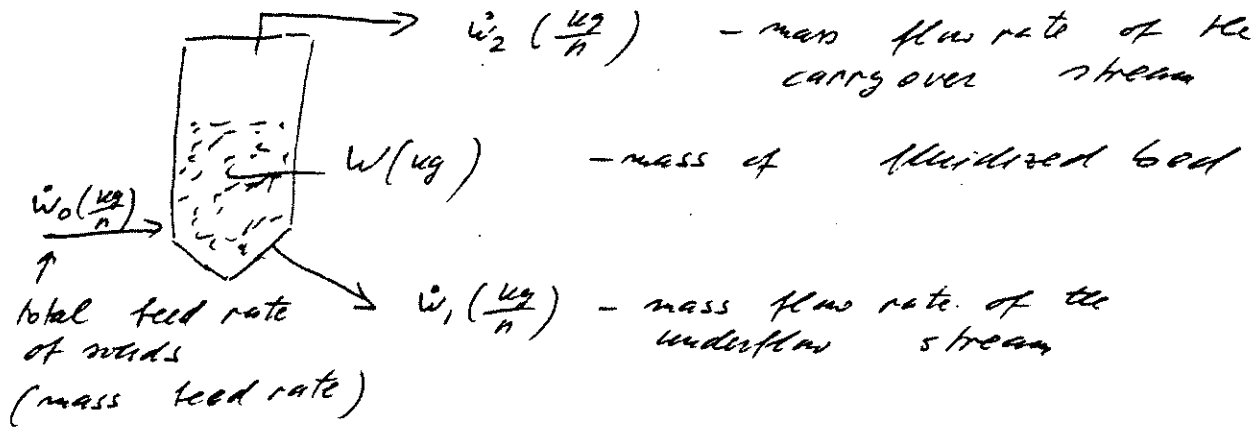 ẇ₂ (kg/h) - mass flow rate of the
carry over stream
W(kg) - mass of fluidized bed
ẇ₀(kg/h)
total feed rate
of solids
(mass feed rate)
ẇ₁(kg/h) - mass flow rate. of the
underflow stream